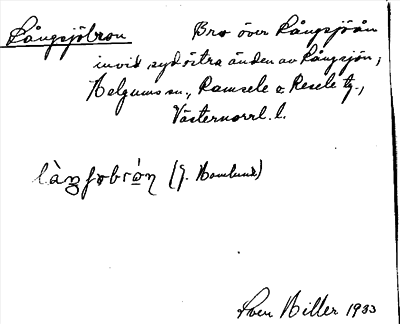 Långsjöbron Bro över Långsjöån
invid sydöstra änden av Långsjön,
Helgums sn., Ramsele o. Resele tg.,
Västernorrl. l.
(J. Homlund)
Sven Hiller 1933